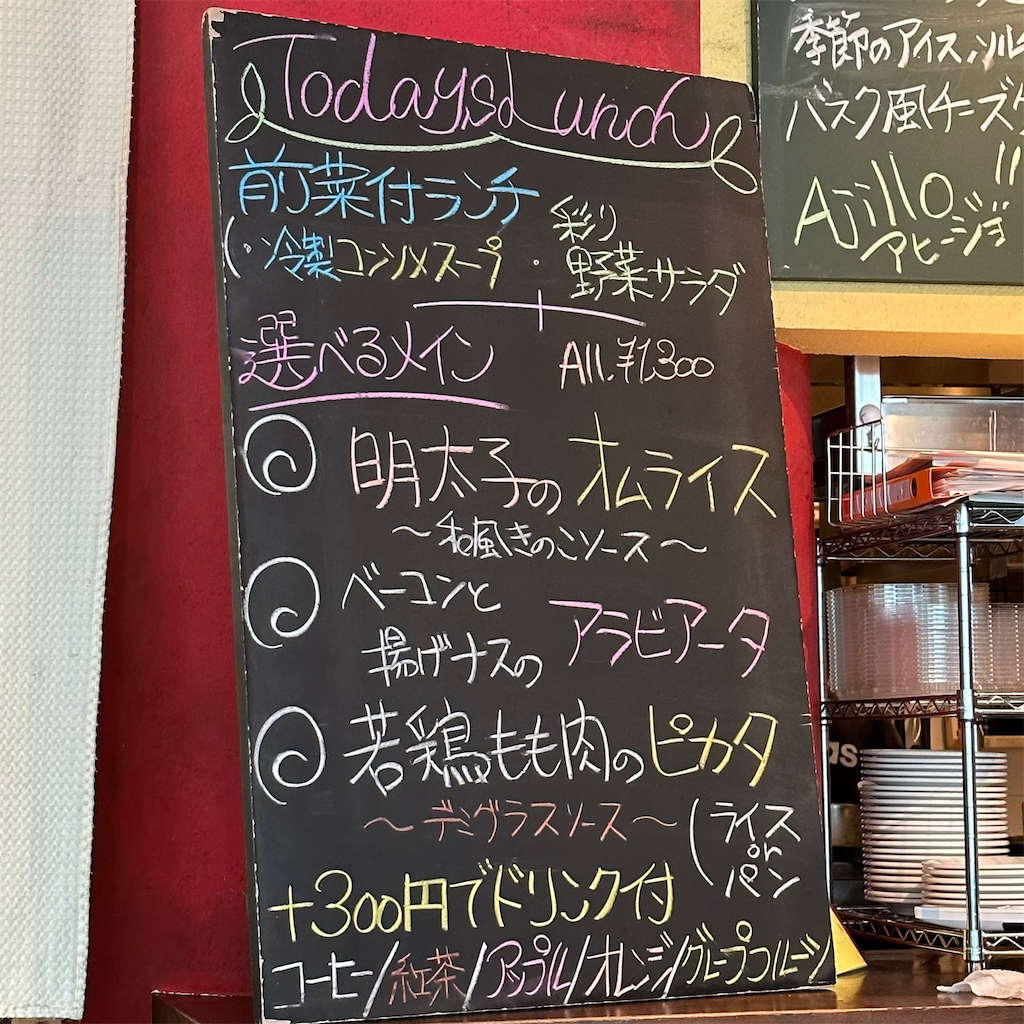 Today's Lunch
前菜付ランチ
(・冷製コンソメスープ ・彩り野菜サラダ
選べるメイン All.¥1,300
明太子のオムライス
～和風きのこソース～
ベーコンと
揚げナスの アラビアータ
若鶏もも肉のピカタ
～デミグラスソース～ (ライス
or
パン
+300円でドリンク付
コーヒー/紅茶/アップル/オレンジ/グレープフルーツ/
季節のアイス、ソルベ
バスク風チーズ
Ajillo!!
アヒージョ